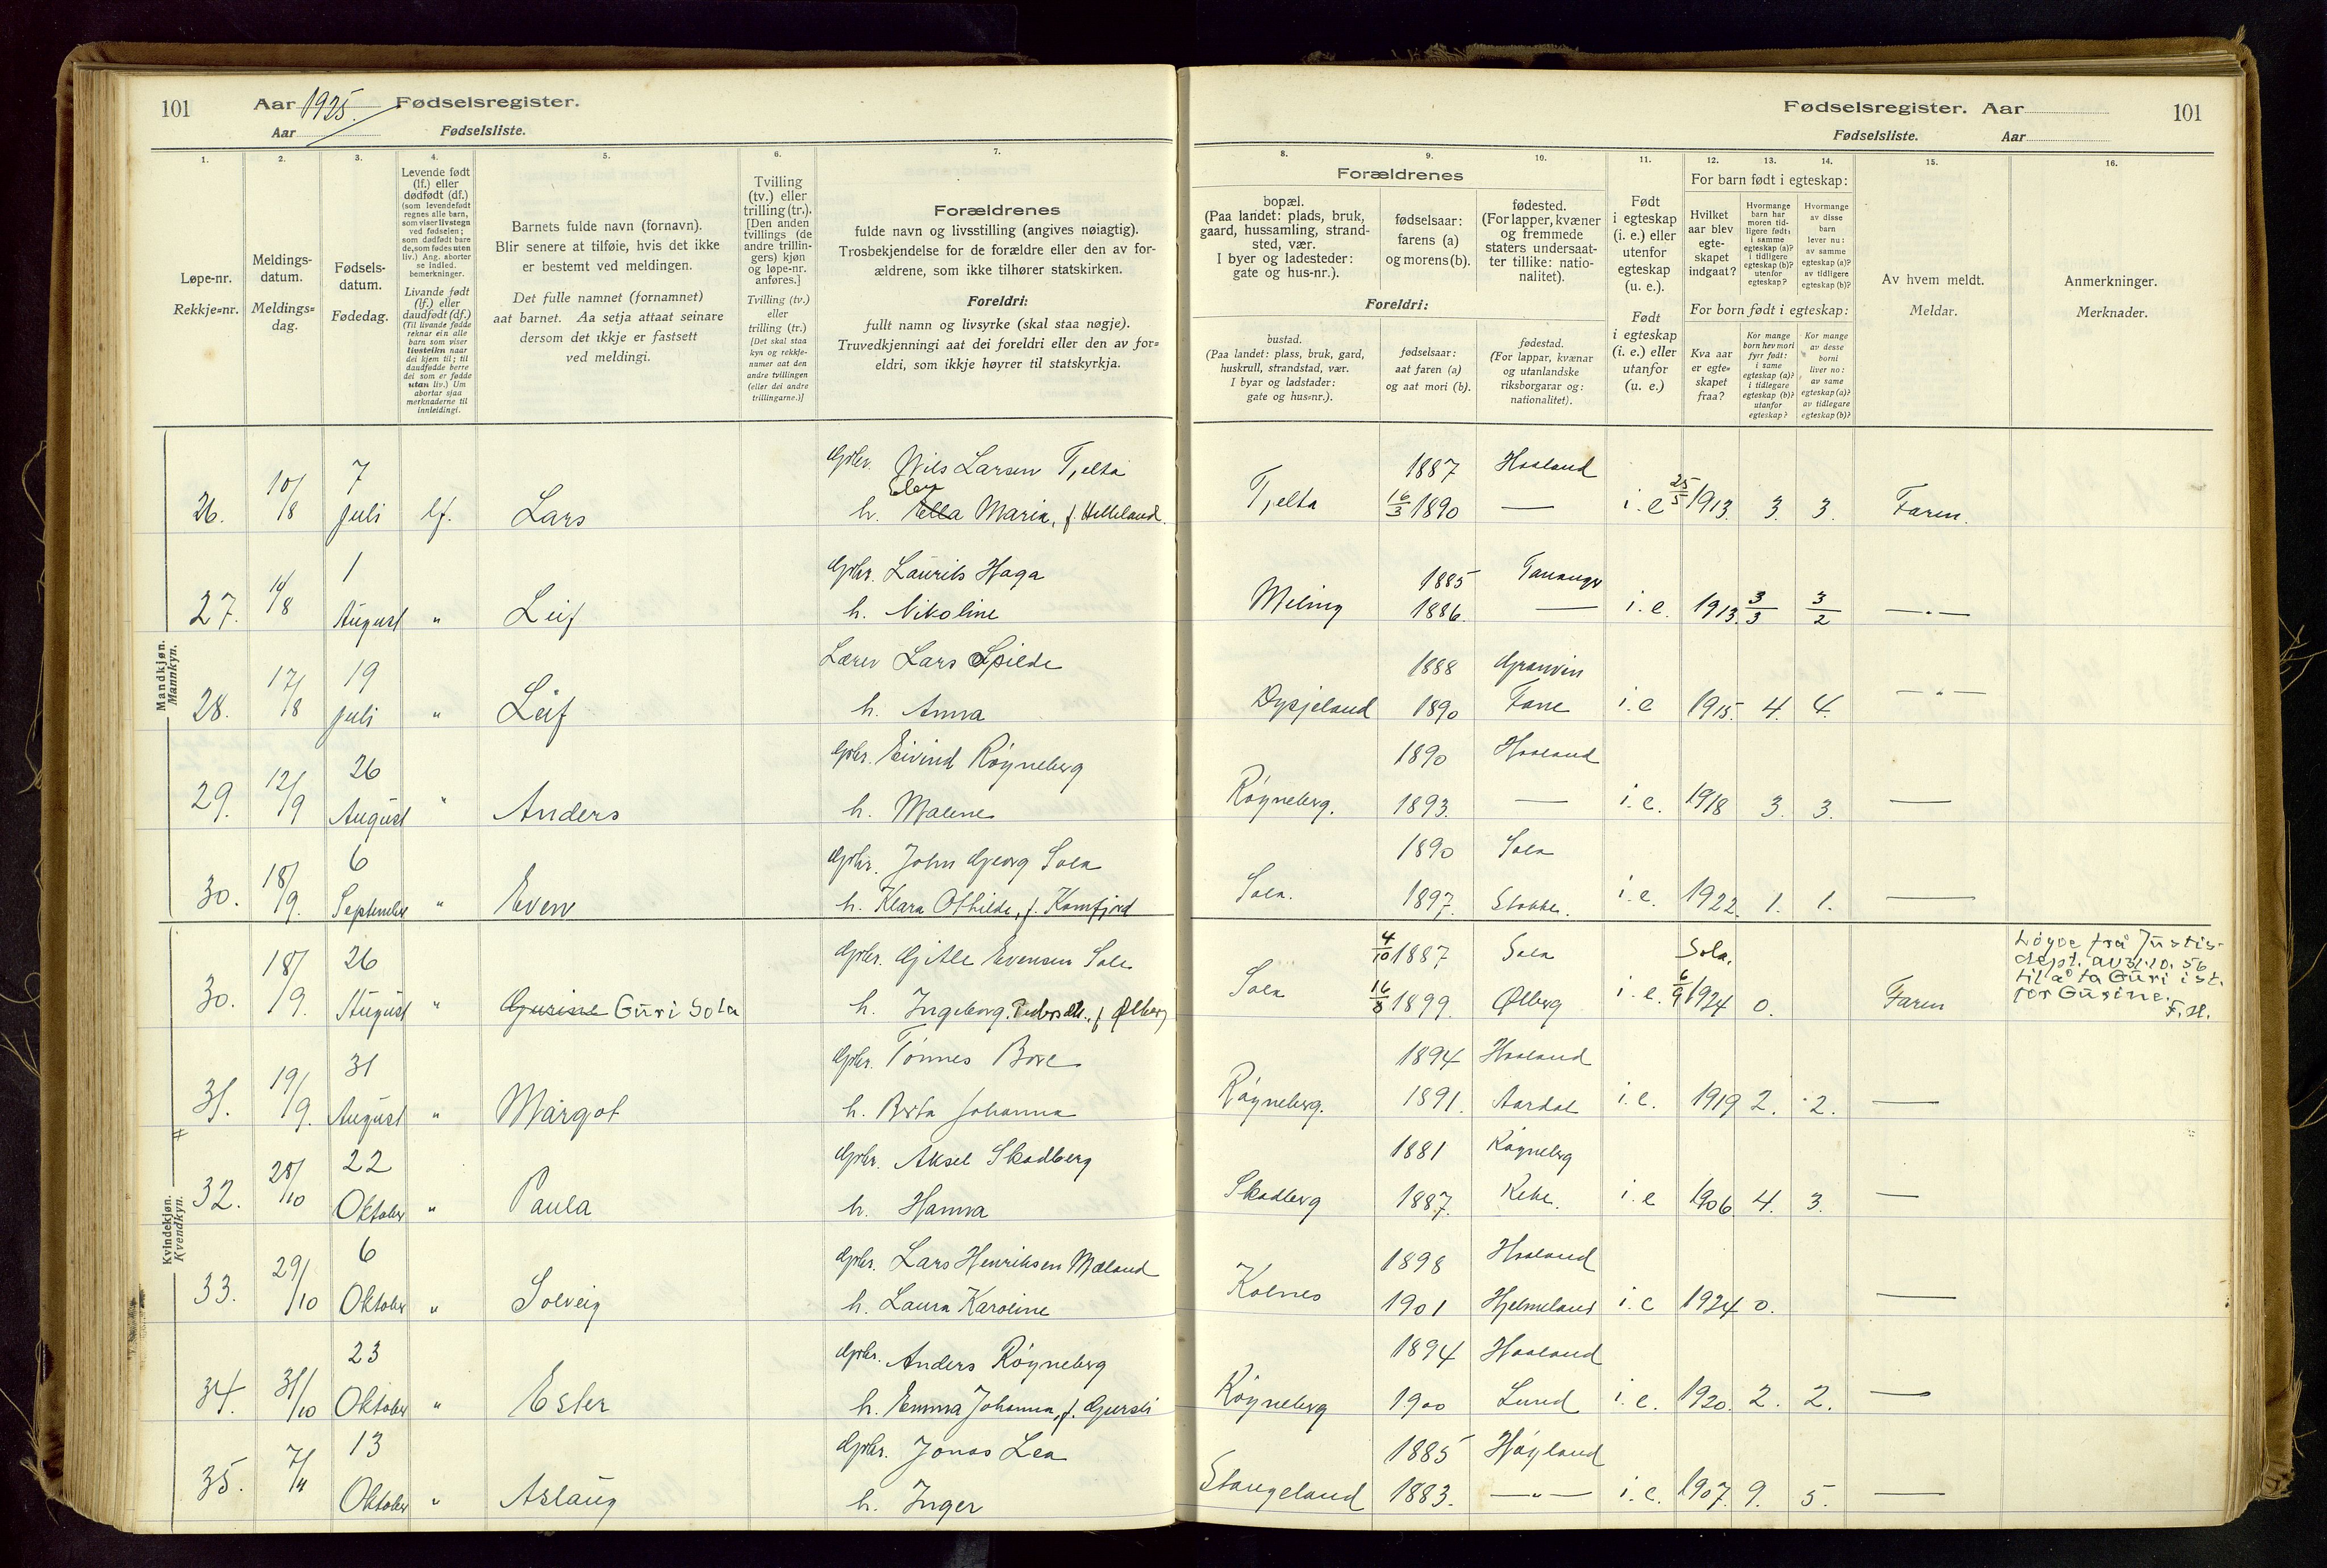 101 Aar 1925. Fødselsregister.
Aar Fødselsliste.
1. 2. 3. 4. 5. 6. 7.
Løpe-nr.
Rekkje=nr.
Meldings-
datum.
Meldings=
dag.
Fødsels-
datum.
Fødedag.
Levende født
(lf.) eller
dødfødt (df.)
(som levendefødt
regnes alle barn,
som viser livstegn
ved fødselen;
som dødfødt bare
de, som fødes uten
liv.) Ang. aborter
se indled.
bemerkninger.
Livande født
(lf.) eller
daudfødt (df.)
(Til livande fødde
reknar ein alle
barn som viser
livsteikn naar
dei kjem til; til
daudfødde berre
dei som er fødde
utan liv.) Um
abortar sjaa
merknaderne til
innleidingi.
Barnets fulde navn (fornavn).
Blir senere at tilføie, hvis det ikke
er bestemt ved meldingen.
Det fulle namnet (fornamnet)
aat barnet. Aa setja attaat seinare
dersom det ikkje er fastsett
ved meldingi.
Tvilling
(tv.) eller
trilling (tr.).
[Den anden
tvillings (de
andre trillin-
gers) kjøn
og løpe-nr.
anføres.]
Tvilling (tv.)
eller
trilling (tr.)
[Det skal staa
kyn og rekkje-
numer aat den
andre tvillingen
(eller dei andre
trillingarne.)]
Forældrenes
fulde navn og livsstilling (angives nøiagtig).
Trosbekjendelse for de forældre eller den av for-
ældrene, som ikke tilhører statskirken.
Foreldri:
fullt namn og livsyrke (skal staa nøgje).
Truvedkjenningi aat dei foreldri eller den av for=
eldri, som ikkje høyrer til statskyrkja.
Fødselsregister. Aar 101
Fødselsliste. Aar
8. 9. 10. 11. 12. 13. 14. 15. 16.
Forældrenes
bopæl.
(Paa landet: plads, bruk,
gaard, hussamling, strand-
sted, vær.
I byer og ladesteder:
gate og hus-nr.).
fødselsaar:
farens (a)
og morens (b).
fødested.
(For lapper, kvæner
og fremmede
staters undersaat-
ter tillike: natio-
nalitet).
Foreldri:
bustad.
(Paa landet: plass, bruk, gard,
huskrull, strandstad, vær.
I byar og ladstader:
gate og hus=nr.).
fødselsaar:
aat faren (a)
og aat mori (b).
fødestad.
(For lappar, kvænar
og utanlandske
riksborgarar og:
nationalitet).
Født
i egteskap
(i. e.) eller
utenfor
egteskap
(u. e.).
Født
i egteskap
(i. e.) eller
utanfor
(u. e.)
For barn født i egteskap:
Hvilket
aar blev
egte-
skapet
indgaat?
Hvormange
barn har
moren tid-
ligere født:
i samme
egteskap (a)?
i tidligere
egteskap (b)?
utenfor
egteskap?
Hvormange
av disse
barn
lever nu:
av samme
egteskap (a)?
av tidligere
egteskap (b)?
For born født i egteskap:
Kva aar
er egte=
skapet
fraa?
Kor mange
born hev mori
fyrr født:
i same
egteskap (a)?
i tidlegare
egteskap (b)?
utanfor
egteskap?
Kor mange
av desse
borni
liver no:
av same
egteskap (a)?
av tidlegare
egteskap (b)?
Av hvem meldt.
Meldar.
Anmerkninger.
Merknader.
Mandkjøn.
Mannkyn.
26. 10/8 7 juli lf. Lars
Gbr. Nils Larsen Tjelta
Elen
h. Ella Maria, f. Helleland.
Tjelta 1887 Haaland
16/3 1890 — i. e 25/5 1913. 3. 3. Faren.
27. 14/8 1 August " Leif
Gbr. Laurits Haga
h. Nikoline
Meling 1885 Tananger
1886. — i. e. 1913. 3/3 3/2 —"—
28. 17/8 19 juli " Leif
Lærer Lars Spilde
h. Anna
Dysjeland 1888 Granvin
1890 Fane i. e 1915. 4. 4. —"—
29. 12/9 26 August " Anders
Gbr. Eivind Røyneberg
h. Malene
Røyneberg. 1890 Haaland
1893. — i. e. 1918 3. 3. —
30. 18/9. 6 September " Even
Gbr. John Georg Sola
h. Klara Othilde, f. Kamfjord
Sola. 1890 Sola
1897. Stokke. i. e. 1922. 1. 1. —
Kvindekjøn.
Kvendkyn.
30. 18/9. 26 August " Gurine Guri Sola
Gbr. Gitle Evensen Sola
h. Ingeborg Pedersdtr., f Ølberg
Sola 4/10 1887 Sola Sola.
16/8 1899. Ølberg i. e. 6/9 1924 0. Faren
Løyve frå Justis-
dept. av 31.10. 56
til å ta Guri ist.
for Gurine.
F. H.
31. 19/9. 31 August " Margot
Gbr. Tønnes Bore
h. Berta Johanna
Røyneberg. 1894 Haaland
1891. Aardal i. e. 1919 2. 2. —
32. 28/10 22 Oktober " Paula
Gbr. Aksel Skadberg
h. Hanna
Skadberg 1881 Røyneberg
1887. i. e 1906. 4. 3. —
33. 29/10 6 Oktober " Solveig
Gbr. Lars Henriksen Mæland
h. Laura Karoline
Kolnes 1898 Haaland
1901 Hjelmeland i. e 1924 0. —
34. 31/10 23 Oktober " Ester
Gbr. Anders Røyneberg
h. Emma Johanna, f.
Røyneberg 1894 Haaland
1900 Lund i. e. 1920. 2. 2. —
35. 7/11 13 Oktober " Aslaug
Gbr. Jonas Lea
h. Inger
Stangeland 1885 Høyland
1883. —"— i. e. 1907. 9. 5. —